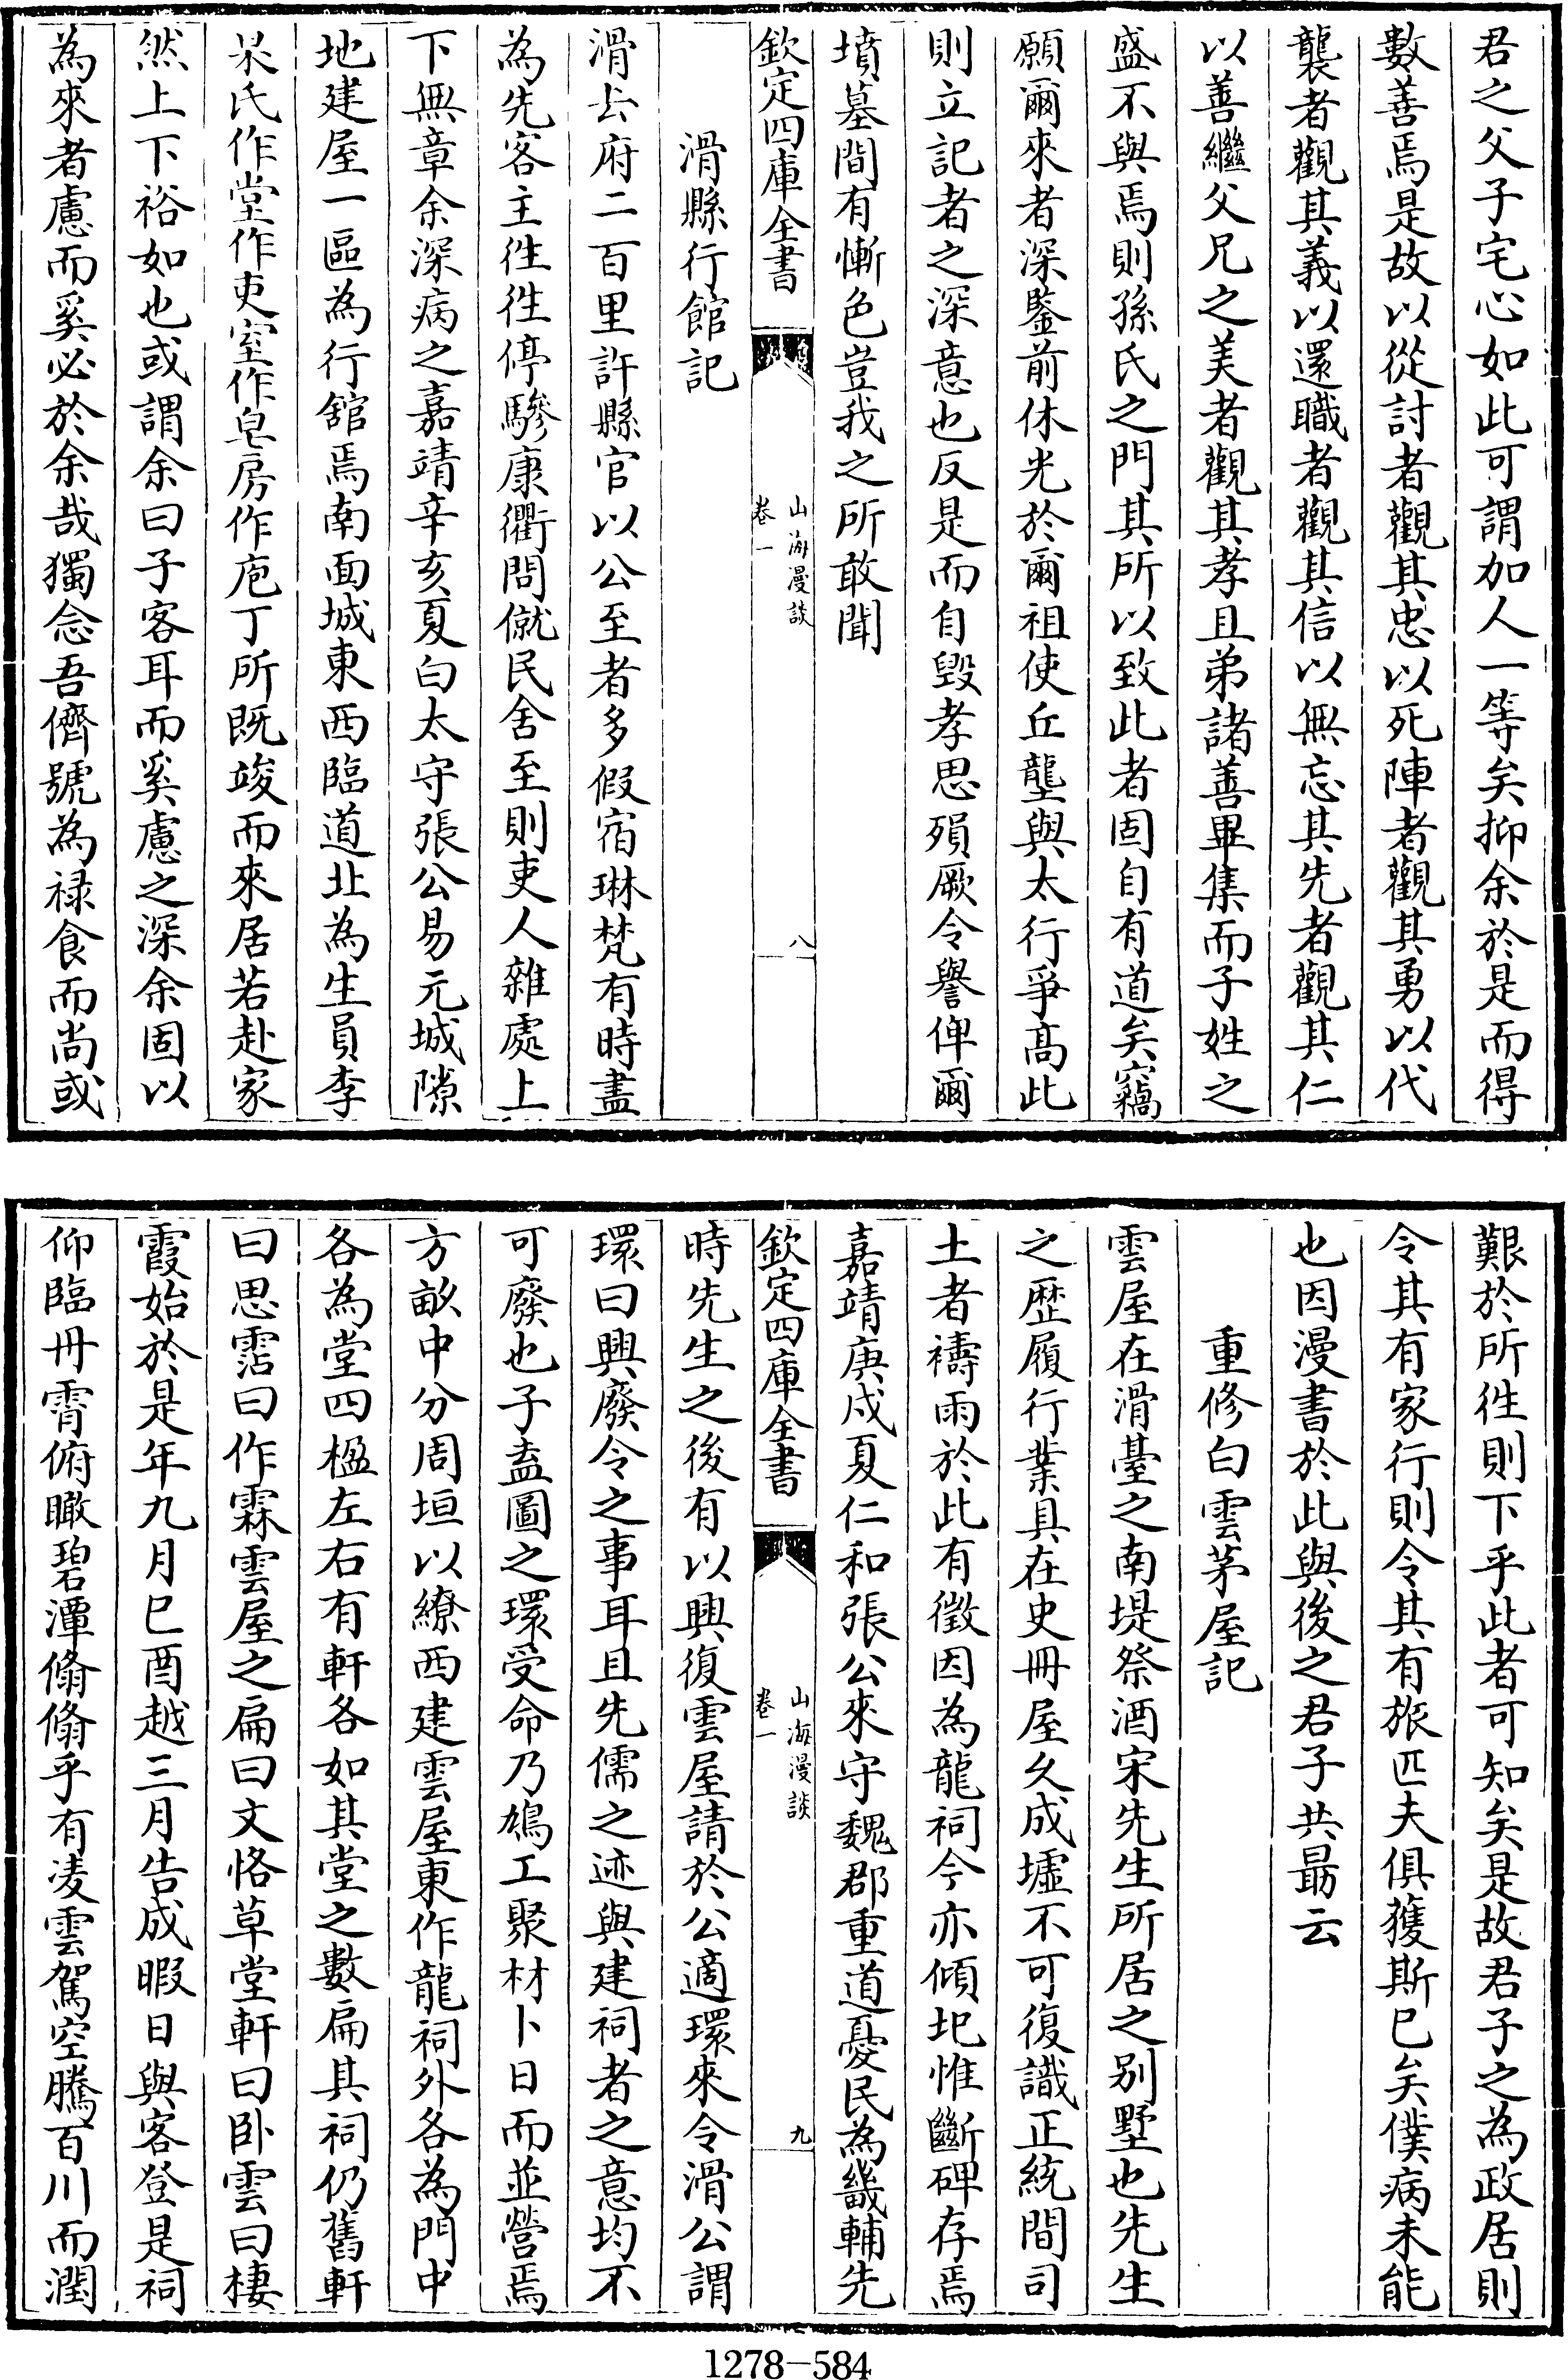 君之父子宅心如此可謂加人一等矣抑余於是而得
數善焉是故以從討者觀其忠以死陣者觀其勇以代
襲者觀其義以還職者觀其信以無忘其先者觀其仁
以善繼父兄之美者觀其孝且弟諸善畢集而子姓之
盛不與焉則孫氏之門其所以致此者固自有道矣竊
願爾來者深鑒前休光於爾祖使丘壟與太行爭高此
則立記者之深意也反是而自毀孝思殞厥令譽俾爾
墳墓間有慚色豈我之所敢聞
欽定四庫全書
山海漫談
卷一
八
滑縣行館記
滑去府二百里許縣官以公至者多假宿琳梵有時盡
為先客主徃徃停驂康衢問僦民舍至則吏人雜處上
下無章余深病之嘉靖辛亥夏白太守張公易元城隙
地建屋一區為行舘焉南面城東西臨道北為生員李
杲氏作堂作吏室作皂房作庖丁所既竣而來居若赴家
然上下裕如也或謂余曰子客耳而奚慮之深余固以
為來者慮而奚必於余哉獨念吾儕號為禄食而尚或
艱於所徃則下乎此者可知矣是故君子之為政居則
令其有家行則令其有旅匹夫俱獲斯已矣僕病未能
也因漫書於此與後之君子共勗云
重修白雲茅屋記
雲屋在滑臺之南堤祭酒宋先生所居之别墅也先生
之歴履行業具在史冊屋久成墟不可復識正統間司
土者禱雨於此有徵因為龍祠今亦傾圮惟斷碑存焉
嘉靖庚戌夏仁和張公來守魏郡重道憂民為畿輔先
欽定四庫全書
山海漫談
卷一
九
時先生之後有以興復雲屋請於公適環來令滑公謂
環曰興廢令之事耳且先儒之迹與建祠者之意均不
可廢也子盍圖之環受命乃鳩工聚材卜日而並營焉
方畝中分周垣以繚西建雲屋東作龍祠外各為門中
各為堂四楹左右有軒各如其堂之數扁其祠仍舊軒
曰思霑曰作霖雲屋之扁曰文恪草堂軒曰卧雲曰棲
霞始於是年九月巳酉越三月告成暇日與客登是祠
仰臨丹霄俯瞰碧潭翛翛乎有凌雲駕空騰百川而潤
1278-584